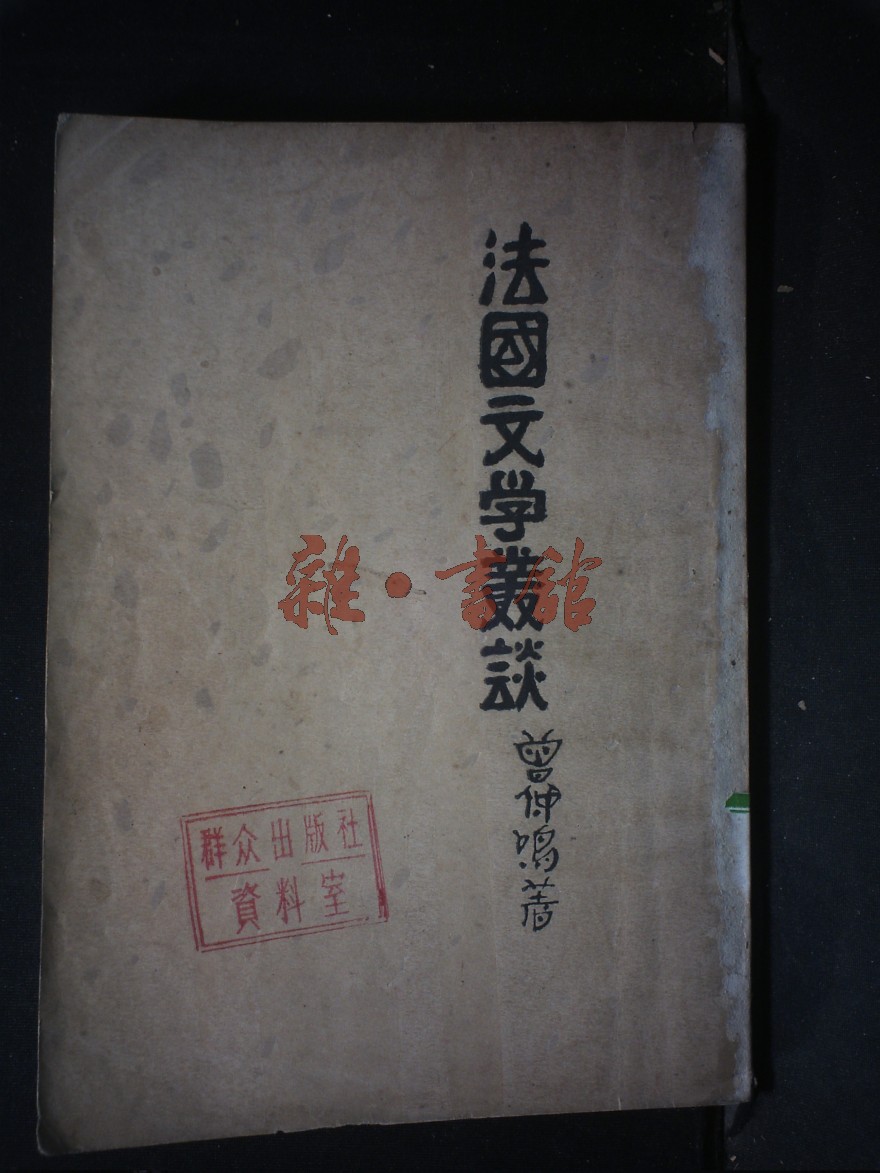 法國文学叢談
曾仲鳴著
雜·書館
群众出版社
資料室